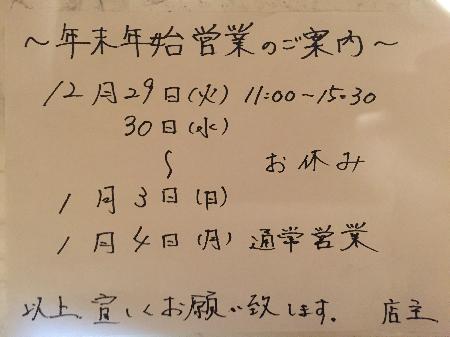 ～年末年始営業のご案内～
12月29日(火) 11:00～15:30
30日(水)
〜 お休み
1月3日(日)
1月4日(月) 通常営業
以上、宜しくお願い致します。 店主